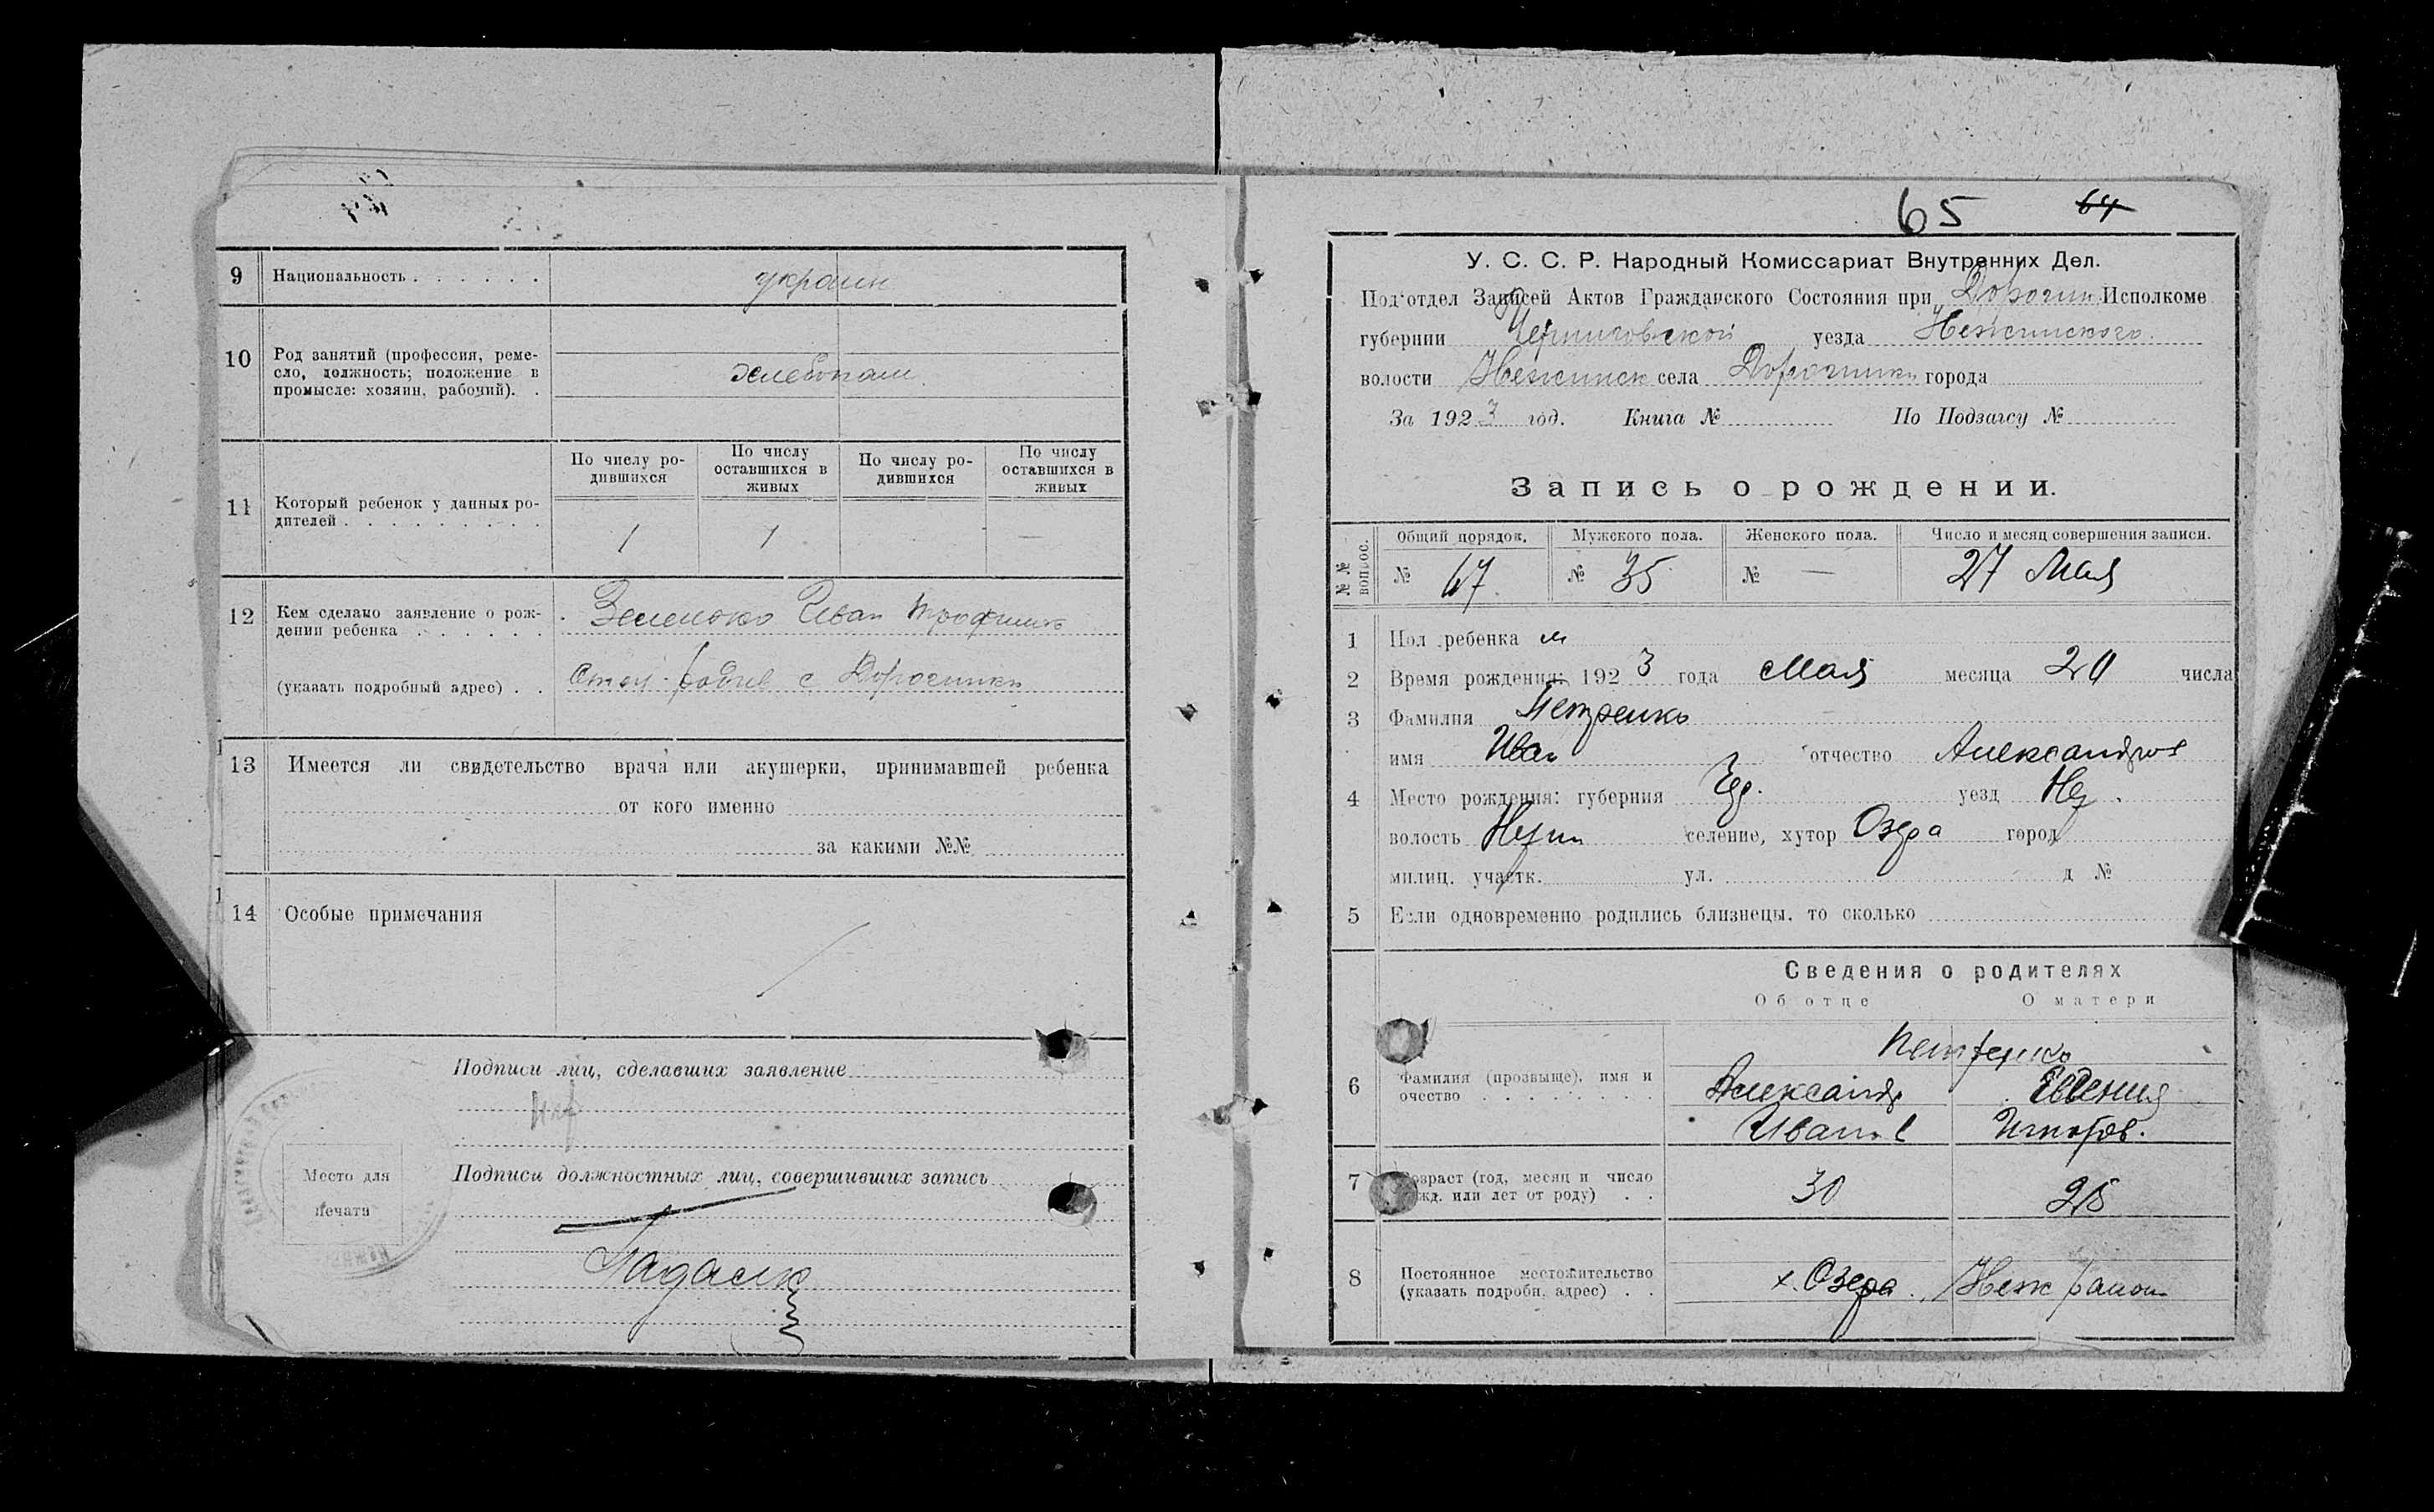 9 Национальность украин
10 Род занятий (профессия, реме-
сло, должность; положение в
промысле: хозяин, рабочий).
хлебопаш
11 Который ребенок у данных ро-
дителей
По числу ро-
дившихся
По числу
оставшихся в
живых
По числу ро-
дившихся
По числу
оставшихся в
живых
1 1 — —
12 Кем сделано заявление о рож-
дении ребенка Иван Трофимов
(указать подробный адрес) с Дорогинки
13 Имеется ли свидетельство врача или акушерки, принимавшей ребенка
от кого именно
за какими №№
14 Особые примечания
Подписи лиц, сделавших заявление
Место для
печати
Подписи должностных лиц, совершивших запись
65 64
У. С. С. Р. Народный Комиссариат Внутренних Дел.
Под'отдел Записей Актов Гражданского Состояния при Дорогин Исполкоме
губернии Черниговской уезда Неженского
волости Неженск села Дорогинки города
За 1923 год. Книга № По Подзагсу №
Запись о рождении.
№№ вопрос.
Общий порядок. Мужского пола. Женского пола. Число и месяц совершения записи.
№ 67 № 35 № — 27 Мая
1 Пол ребенка м
2 Время рождения: 1923 года Мая месяца 20 числа
3 Фамилия Петренко
имя Иван отчество Александров
4 Место рождения: губерния уезд Неж.
волость Нежин селение, хутор Озера город
милиц. участк. ул. д №
5 Если одновременно родились близнецы, то сколько
Сведения о родителях
Об отце О матери
Петренко
6 Фамилия (прозвыще), имя и
очество
Александр Евгения
Иванов
7 Возраст (год, месяц и число
рожд. или лет от роду) 30
8 Постоянное местожительство
(указать подробн. адрес) х. Озера Неж район